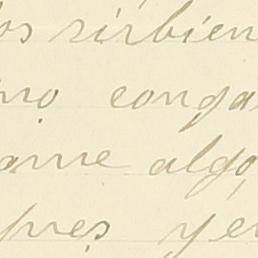 os sirbien
mo conga
ame algo
pues yer